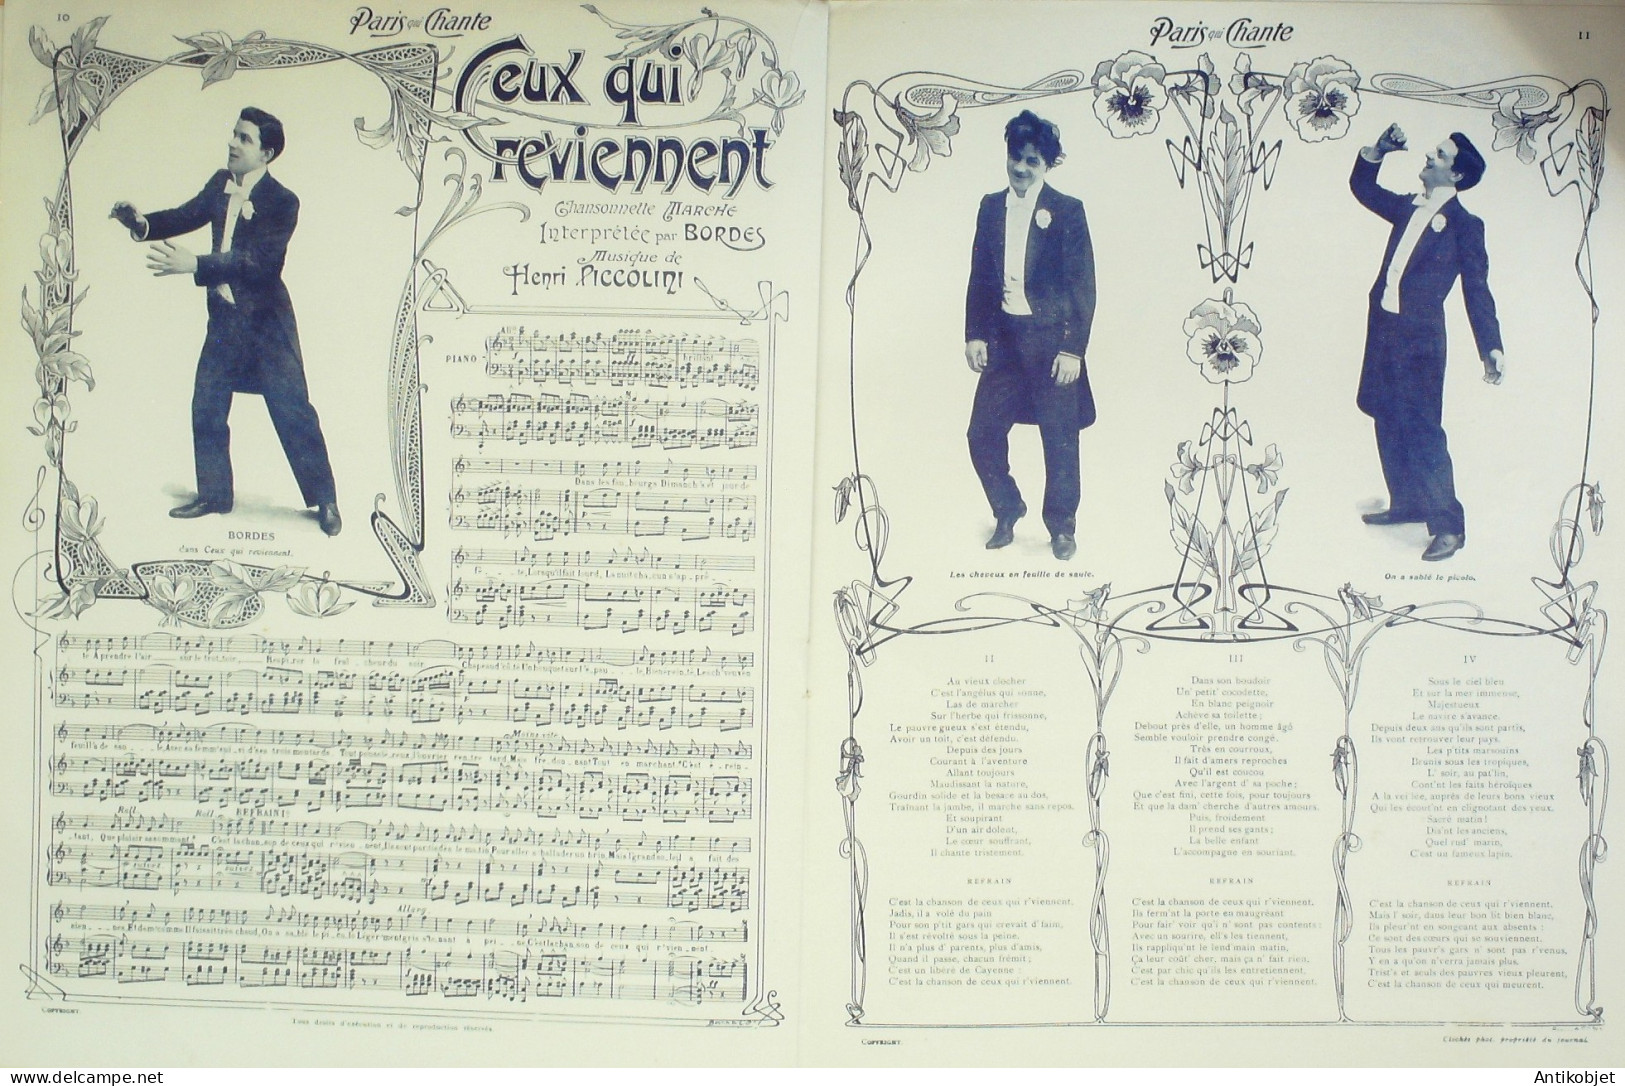 10
Paris qui Chante
Ceux qui
reviennent
Chansonnette MARCHE
Interprétée par BORDES
Musique de
Henri PICCOLINI
PIANO
brillant
BORDES
dans Ceux qui reviennent.
Dans les fau_bourgs Dimanch's et jour de
Fê_te, Lorsqu'il fait lourd, La nuit chacun s'ap_prê_
te A prendre l'air sur le trottoir, Respi_rer la fraî_cheur du soir.
Moins vite
Tout
en marchant
Rall.
Rall REFRAIN
suivez
C'est la chan_son de ceux qui r'vien_nent,
Allarg
C'est la chan_son de ceux qui r'vien_nent.
COPYRIGHT.
Tous droits d'exécution et de reproduction réservés.
Paris qui Chante
11
Les cheveux en feuille de saule.
On a sablé le picolo.
II
Au vieux clocher
C'est l'angélus qui sonne,
Las de marcher
Sur l'herbe qui frissonne,
Le pauvre gueux s'est étendu,
Avoir un toit, c'est défendu.
Depuis des jours
Courant à l'aventure
Allant toujours
Maudissant la nature,
Gourdin solide et la besace au dos,
Traînant la jambe, il marche sans repos.
Et soupirant
D'un air dolent,
Le cœur souffrant,
Il chante tristement.
REFRAIN
C'est la chanson de ceux qui r'viennent,
Jadis, il a volé du pain
Pour son p'tit gars qui crevait d' faim,
Il s'est révolté sous la peine,
Il n'a plus d' parents, plus d'amis,
Quand il passe, chacun frémit;
C'est un libéré de Cayenne :
C'est la chanson de ceux qui r'viennent.
III
Dans son boudoir
Un' petit' cocodette,
En blanc peignoir
Achève sa toilette;
Debout près d'elle, un homme âgé
Semble vouloir prendre congé.
Très en courroux,
Il fait d'amers reproches
Qu'il est coucou
Avec l'argent d' sa poche;
Que c'est fini, cette fois, pour toujours
Et que la dam' cherche d'autres amours.
Puis, froidement
Il prend ses gants;
La belle enfant
L'accompagne en souriant.
REFRAIN
C'est la chanson de ceux qui r'viennent,
Ils ferm'nt la porte en maugréant
Pour fair' voir qu'i n' sont pas contents;
Avec un sourire, ell's les tiennent,
Ils rappliqu'nt le lend'main matin,
Ça leur coût' cher, mais ça n' fait rien,
C'est par chic qu'ils les entretiennent.
C'est la chanson de ceux qui r'viennent.
IV
Sous le ciel bleu
Et sur la mer immense,
Majestueux
Le navire s'avance.
Depuis deux ans qu'ils sont partis,
Ils vont retrouver leur pays.
Les p'tits marsouins
Brunis sous les tropiques,
L' soir, au pat'lin,
Cont'nt les faits héroïques
A la veillée, auprès de leurs bons vieux
Qui les écout'nt en clignotant des yeux.
Sacré matin!
Dis'nt les anciens,
Quel rud' marin,
C'est un fameux lapin.
REFRAIN
C'est la chanson de ceux qui r'viennent,
Mais l' soir, dans leur bon lit bien blanc,
Ils pleur'nt en songeant aux absents :
Ce sont des cœurs qui se souviennent.
Tous les pauvr's gars n' sont pas r'venus,
Y en a qu'on n'verra jamais plus,
Trist's et seuls des pauvres vieux pleurent,
C'est la chanson de ceux qui meurent.
COPYRIGHT.
Clichés phot. propriété du journal.
Antikobjet